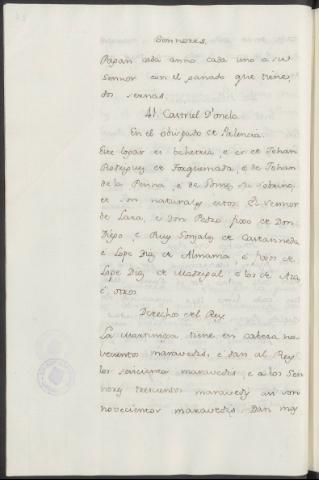 Sonnores.
Papan cada anno cada uno a su
Sennor con el ganado que tiene
dos sernas.
41 Castriel D'onelo
En el obispado de Palencia.
Este logar es behetria, e es de Johan
Rodriguez de Torquemada, e de Johan
de la Penna, e de Gomez su sobrino,
et son naturales estos. El Sennor
de Lara, e Don Pedro fijo de Don
Diego, e Ruy Gonzalez de Castanneda
e Lope Diaz de Almama, e fijos de
Lope Diaz de Madrigal, e los de Aza,
é otros.
Derechos del Rey
La Martiniega tiene en cabeza no-
vecientos maravedis, e dan al Rey
los seiscientos maravedis, e a los Sen-
nores trescientos maravedis asi son
novecientos maravedis. Dan mas